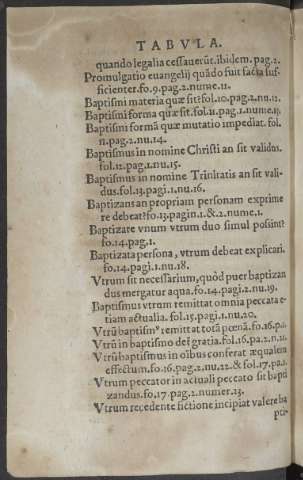 TABVLA.
quando legalia cessauerūt. ibidem. pag. 2.
Promulgatio euangelij quādo fuit facta suf-
ficienter. fo. 9. pag. 2. nume. 11.
Baptismi materia quæ sit? fol. 10. pag. 2. nu. 12.
Baptismi forma quæ sit. fol. 11. pag. 1. nume. 13.
Baptismi formā quæ mutatio impediat. fol.
11. pag. 2. nu. 14.
Baptismus in nomine Christi an sit validus.
fol. 12. pag. 1. nu. 15.
Baptismus in nomine Trinitatis an sit vali-
dus. fol. 13. pagi. 1. nu. 16.
Baptizans an propriam personam exprime
re debeat? fo. 13. pagin. 1. & 2. nume. 1.
Baptizare vnum vtrum duo simul possint?
fo. 14. pag. 1.
Baptizata persona, vtrum debeat explicari.
fo. 14. pagi. 1. nu. 18.
Vtrum sit necessarium, quòd puer baptizan
dus mergatur aqua. fo. 14. pagi. 2. nu. 19.
Baptismus vtrum remittat omnia peccata e-
tiam actualia. fol. 15. pagi. 1. nu. 20.
Vtrū baptism⁹ remittat totā pœnā. fo. 16. pa.
Vtrū in baptismo det̃ gratia. fol. 16. pa. 2. n. 21.
Vtrū baptismus in oībus conferat æqualem
effectum. fo. 16. pag. 2. nu. 22. & fol. 17. pa. 1.
Vtrum peccator in actuali peccato sit bapti
zandus. fo. 17. pag. 2. numer. 23.
Vtrum recedente fictione incipiat valere ba
pti-